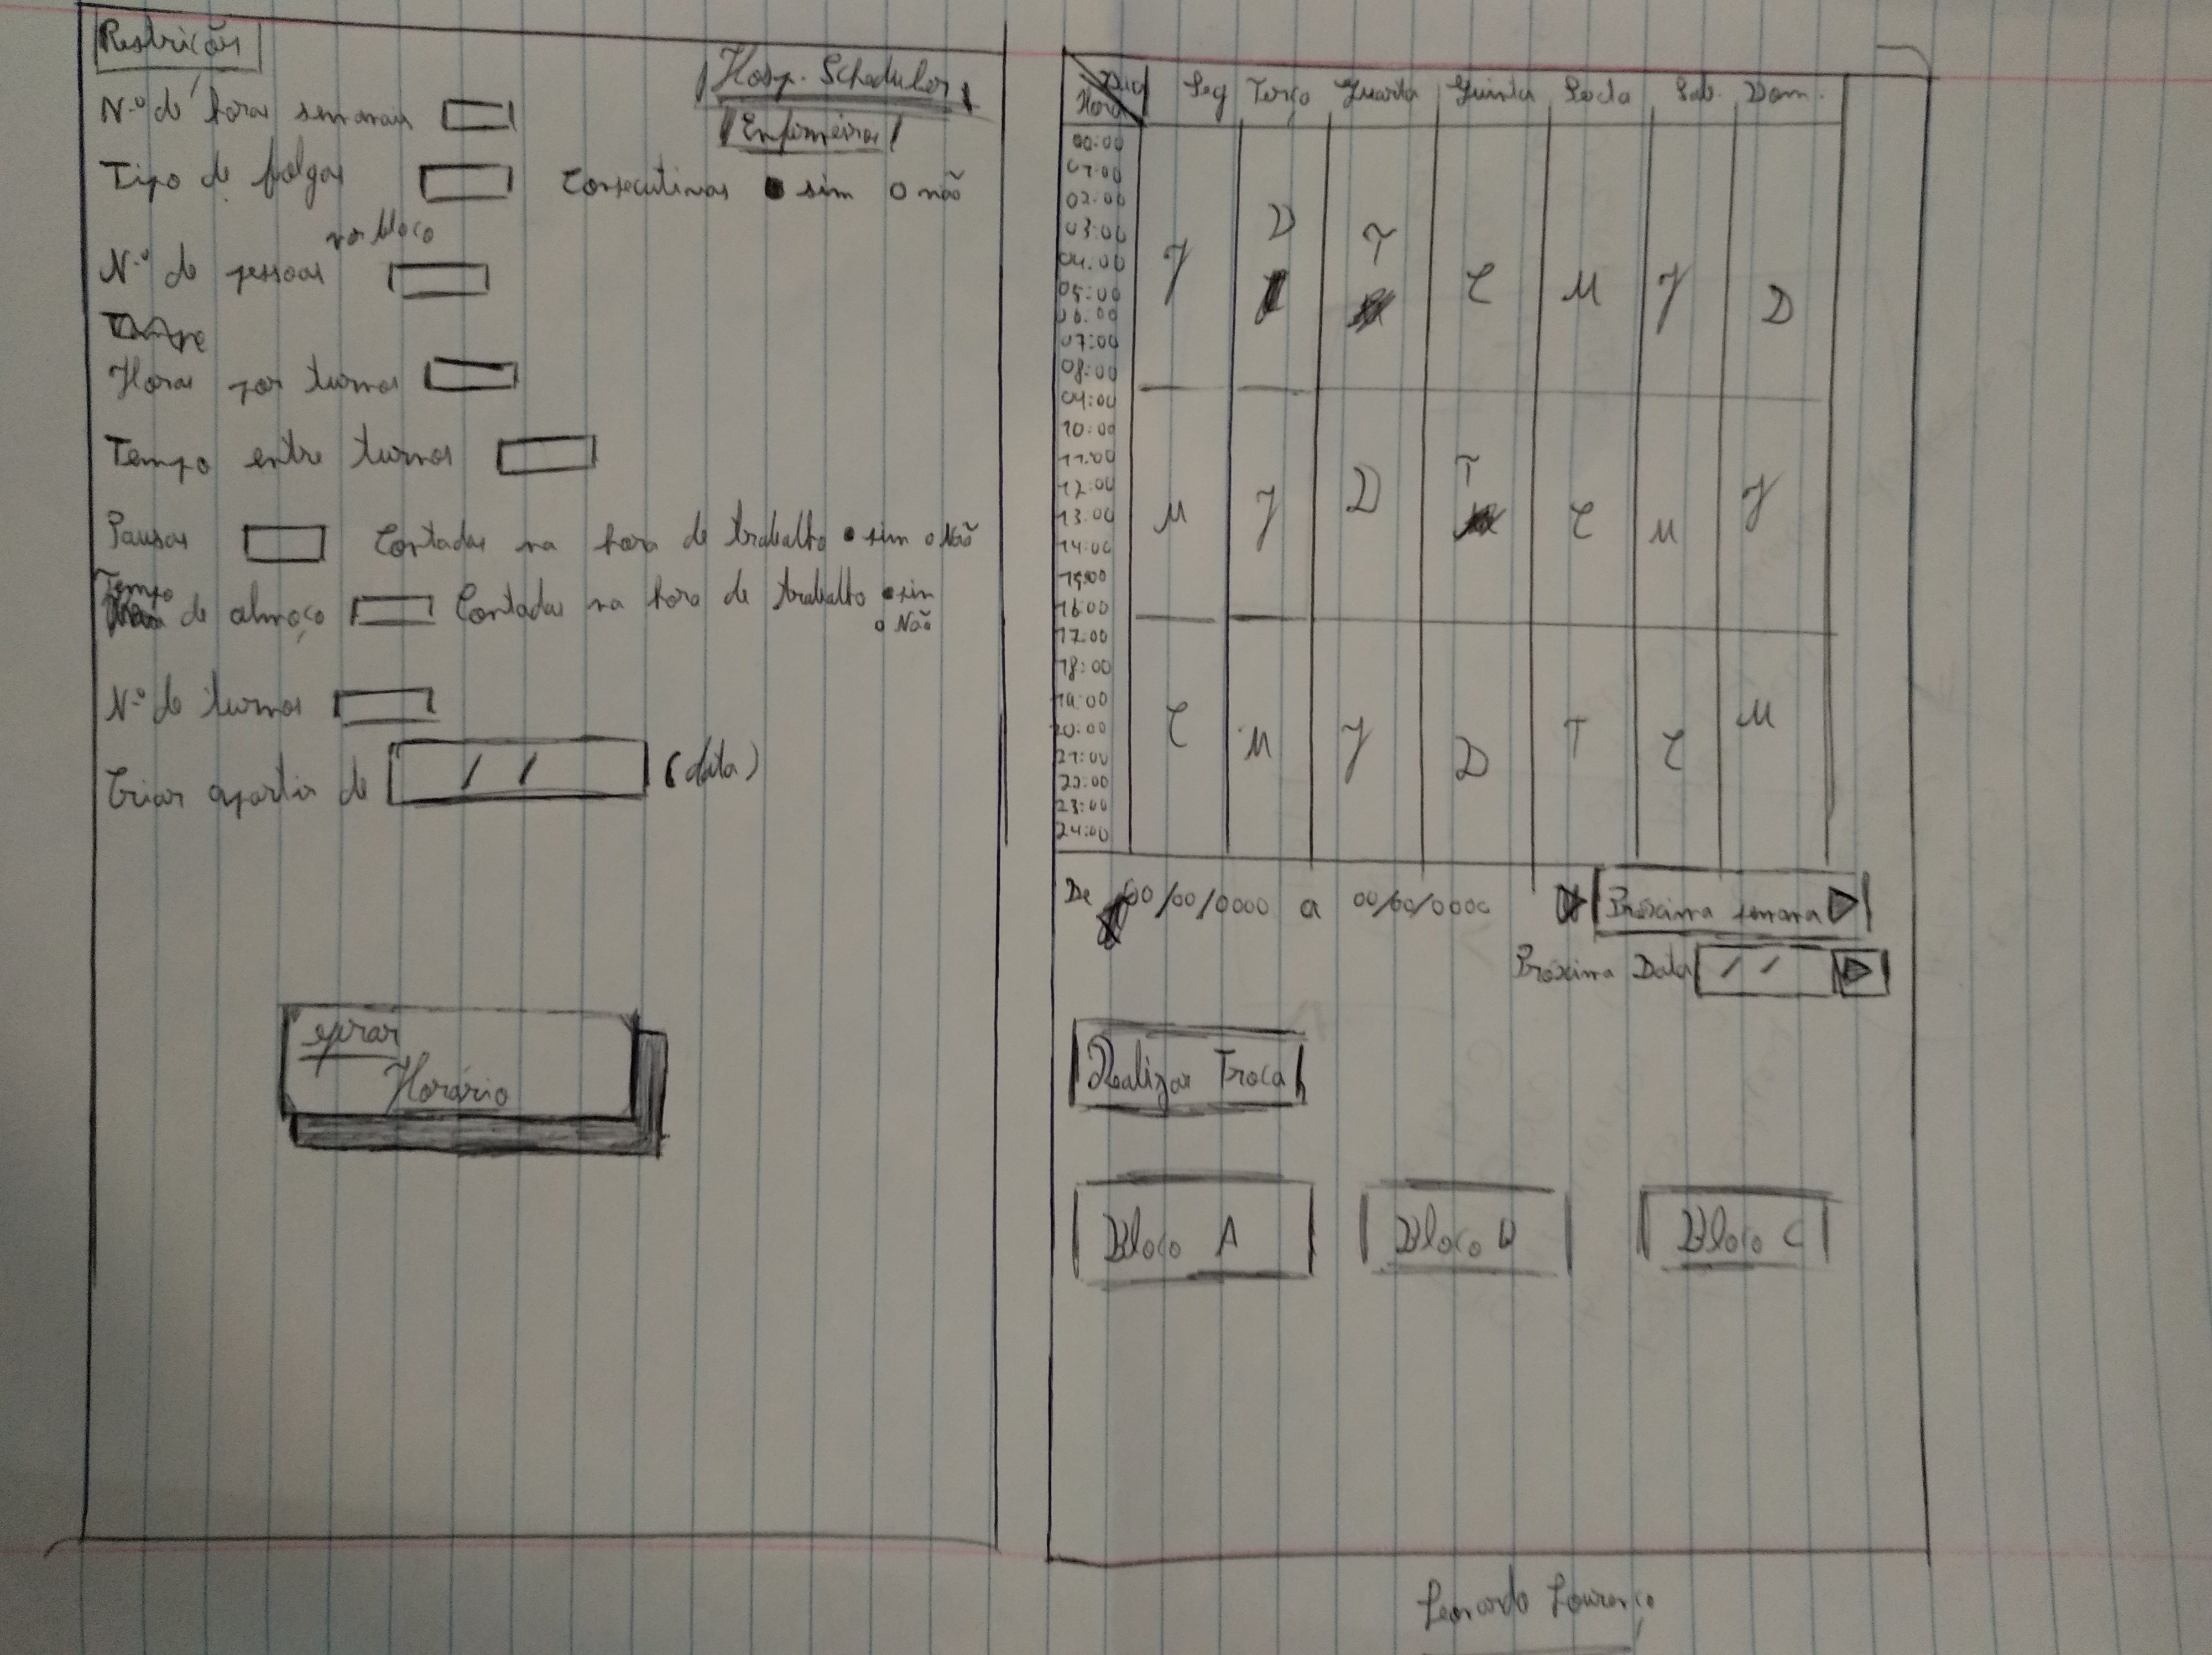 Restrições
Hosp. Scheduler
Enfermeiros
N.º de horas semanais
Tipo de folgas Consecutivas sim não
no bloco
N.º de pessoas
Horas por turnos
Tempo entre turnos
Pausas Contadas na hora de trabalho sim Não
Tempo
de almoço Contadas na hora de trabalho sim
Não
N.º de turnos
Criar apartir de / / (data)
Horário
Dia Seg Terça Quarta Quinta Sexta Sab. Dom.
Hora
00:00
01:00
02:00
03:00
04:00
05:00
06:00
07:00
08:00
09:00
10:00
11:00
12:00
13:00
14:00
15:00
16:00
17:00
18:00
19:00
20:00
21:00
22:00
23:00
24:00
D T
J C M J D
T
M J D C M J
C M J D T C M
De 00/00/0000 a 00/00/0000 Próxima semana
Próxima Data / /
Realizar Troca
Bloco A Bloco B Bloco C
Leonardo Lourenço